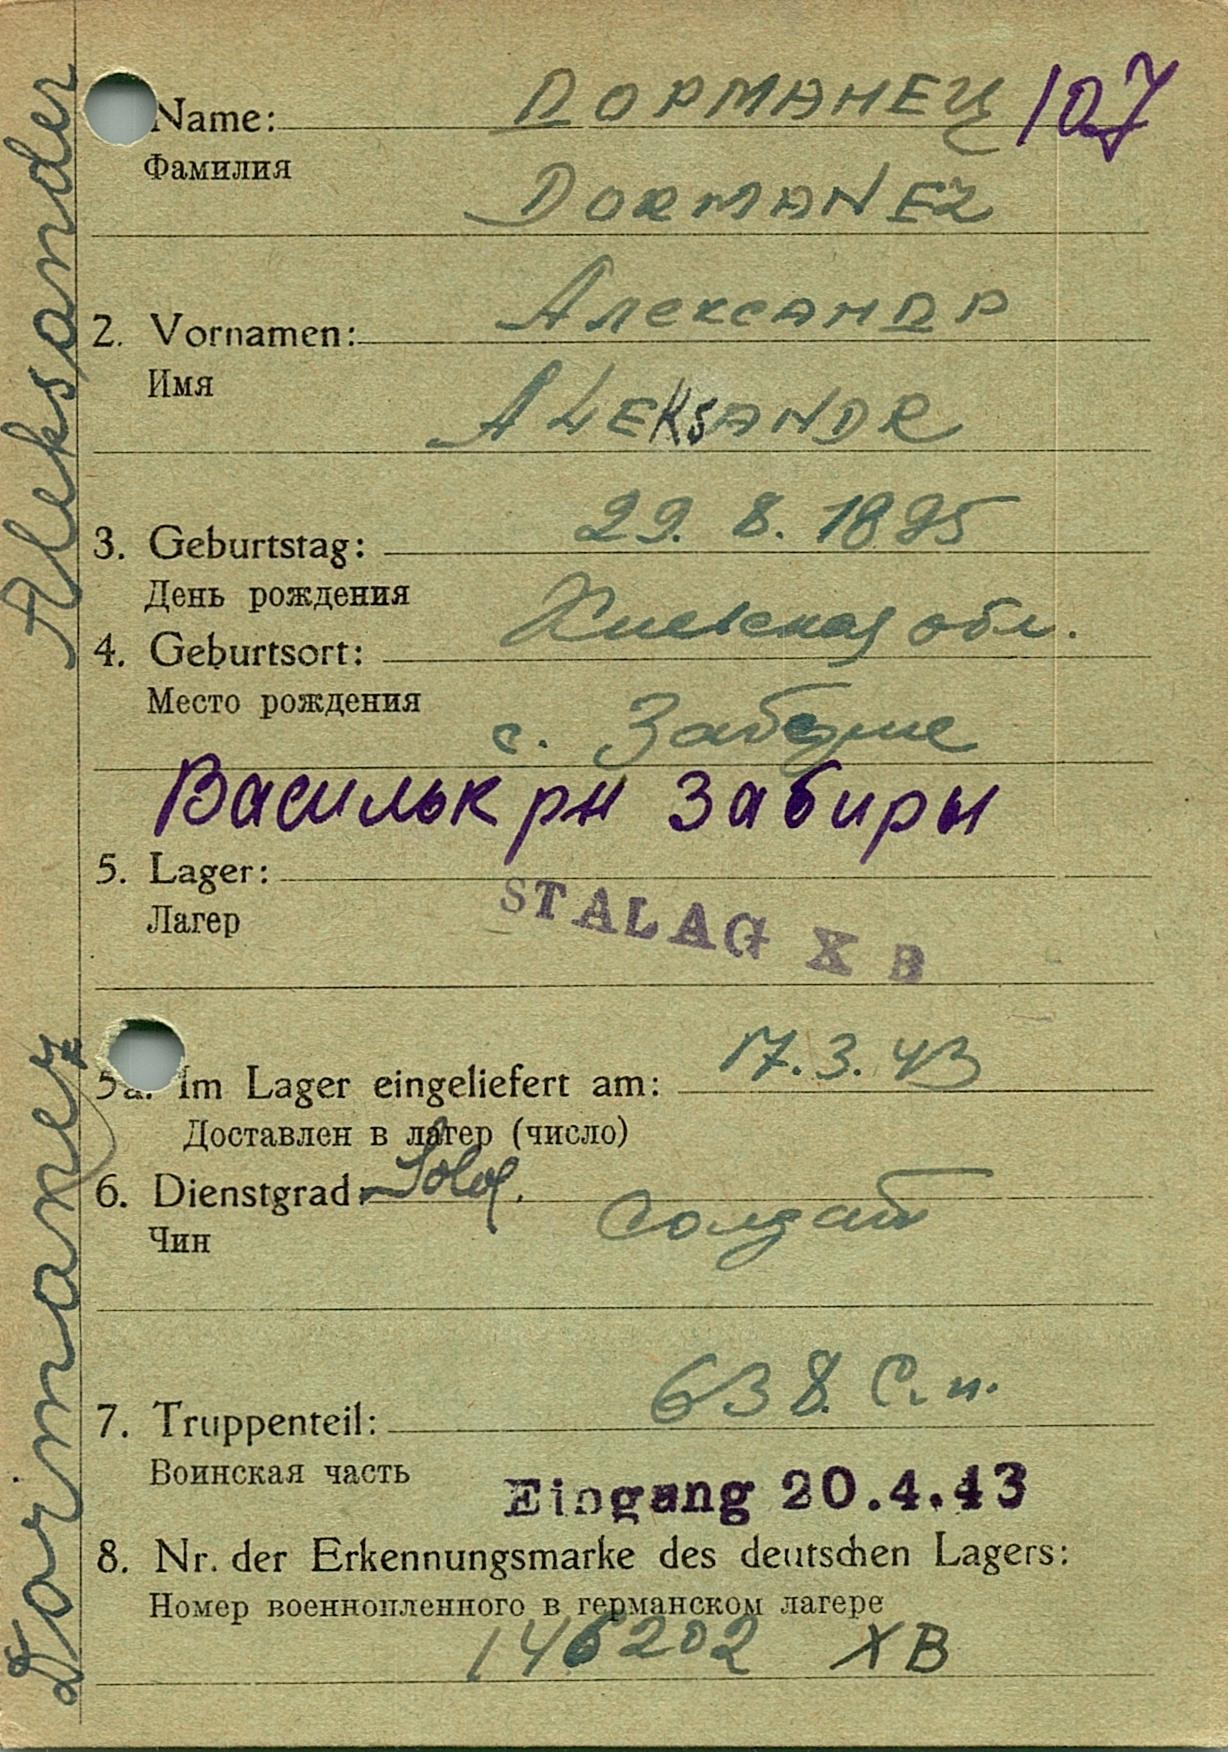 Name: ДОРМАНЕЦ 107
Фамилия
DORMANEZ
2. Vornamen: АЛЕКСАНДР
Имя
ALEKSANDR
3. Geburtstag: 29. 8. 1895
День рождения
4. Geburtsort: Киевская обл.
Место рождения
с.
Васильк рн Забиры
5. Lager:
Лагер
STALAG X B
5a. Im Lager eingeliefert am: 17.3.43
Доставлен в лагер (число)
6. Dienstgrad: Sold.
Солдат
Чин
7. Truppenteil: 638. С. п.
Воинская часть
Eingang 20.4.43
8. Nr. der Erkennungsmarke des deutschen Lagers:
Номер военнопленного в германском лагере
146202 XB
Dormanez Aleksander